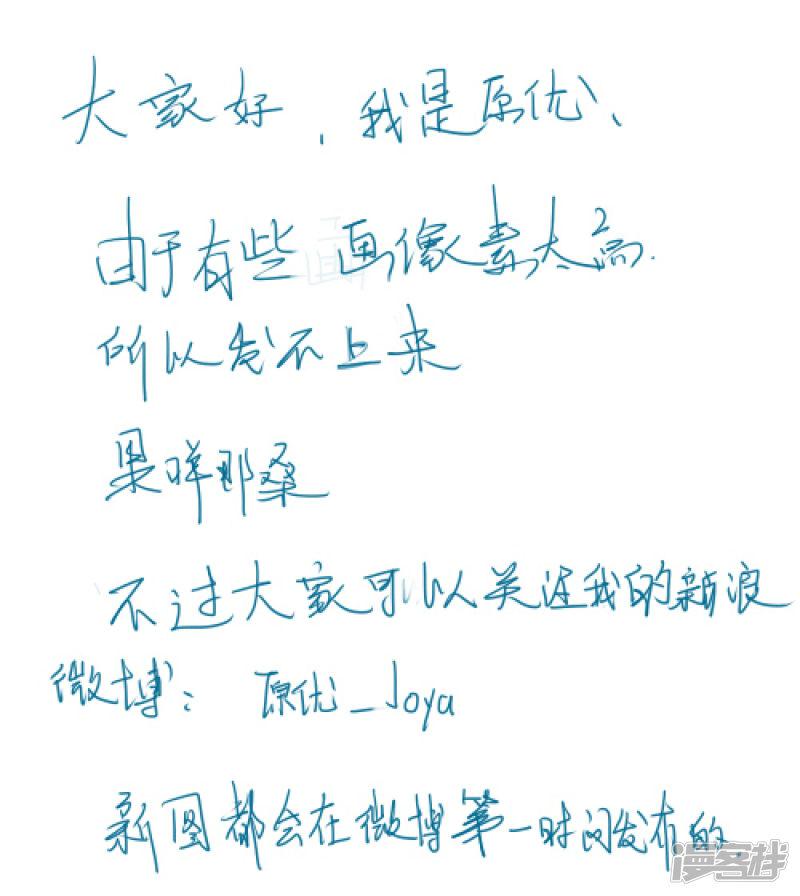 大家好，我是原优、
由于有些画像素太高.
所以发不上来
果咩那桑
不过大家可以关注我的新浪
微博：原优_Joya
新图都会在微博第一时间发布的.
漫客栈